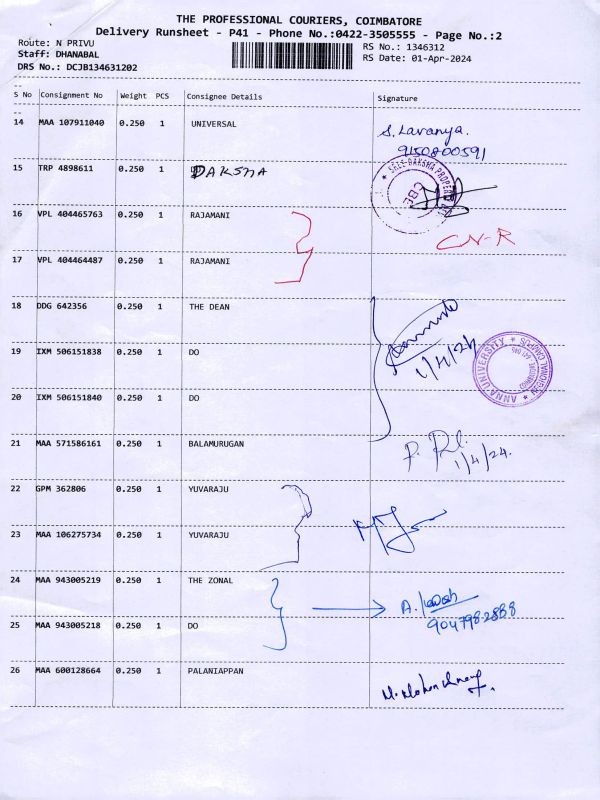 THE PROFESSIONAL COURIERS, COIMBATORE
Delivery Runsheet - P41 - Phone No.:0422-3505555 - Page No.:2
Route: N PRIVU
Staff: DHANABAL
DRS No.: DCJB134631202
RS No.: 1346312
RS Date: 01-Apr-2024
S No Consignment No Weight PCS Consignee Details Signature
14 MAA 107911040 0.250 1 UNIVERSAL S. Lavanya.
9150800591
15 TRP 4898611 0.250 1 DAKSHA
CBE
16 VPL 404465763 0.250 1 RAJAMANI
CN-R
17 VPL 404464487 0.250 1 RAJAMANI
18 DDG 642356 0.250 1 THE DEAN
19 IXM 506151838 0.250 1 DO 1/4/24
ANNA UNIVERSITY REGIONAL CAMPUS
20 IXM 506151840 0.250 1 DO
21 MAA 571586161 0.250 1 BALAMURUGAN
1/4/24.
22 GPM 362806 0.250 1 YUVARAJU
23 MAA 106275734 0.250 1 YUVARAJU
24 MAA 943005219 0.250 1 THE ZONAL
25 MAA 943005218 0.250 1 DO
26 MAA 600128664 0.250 1 PALANIAPPAN